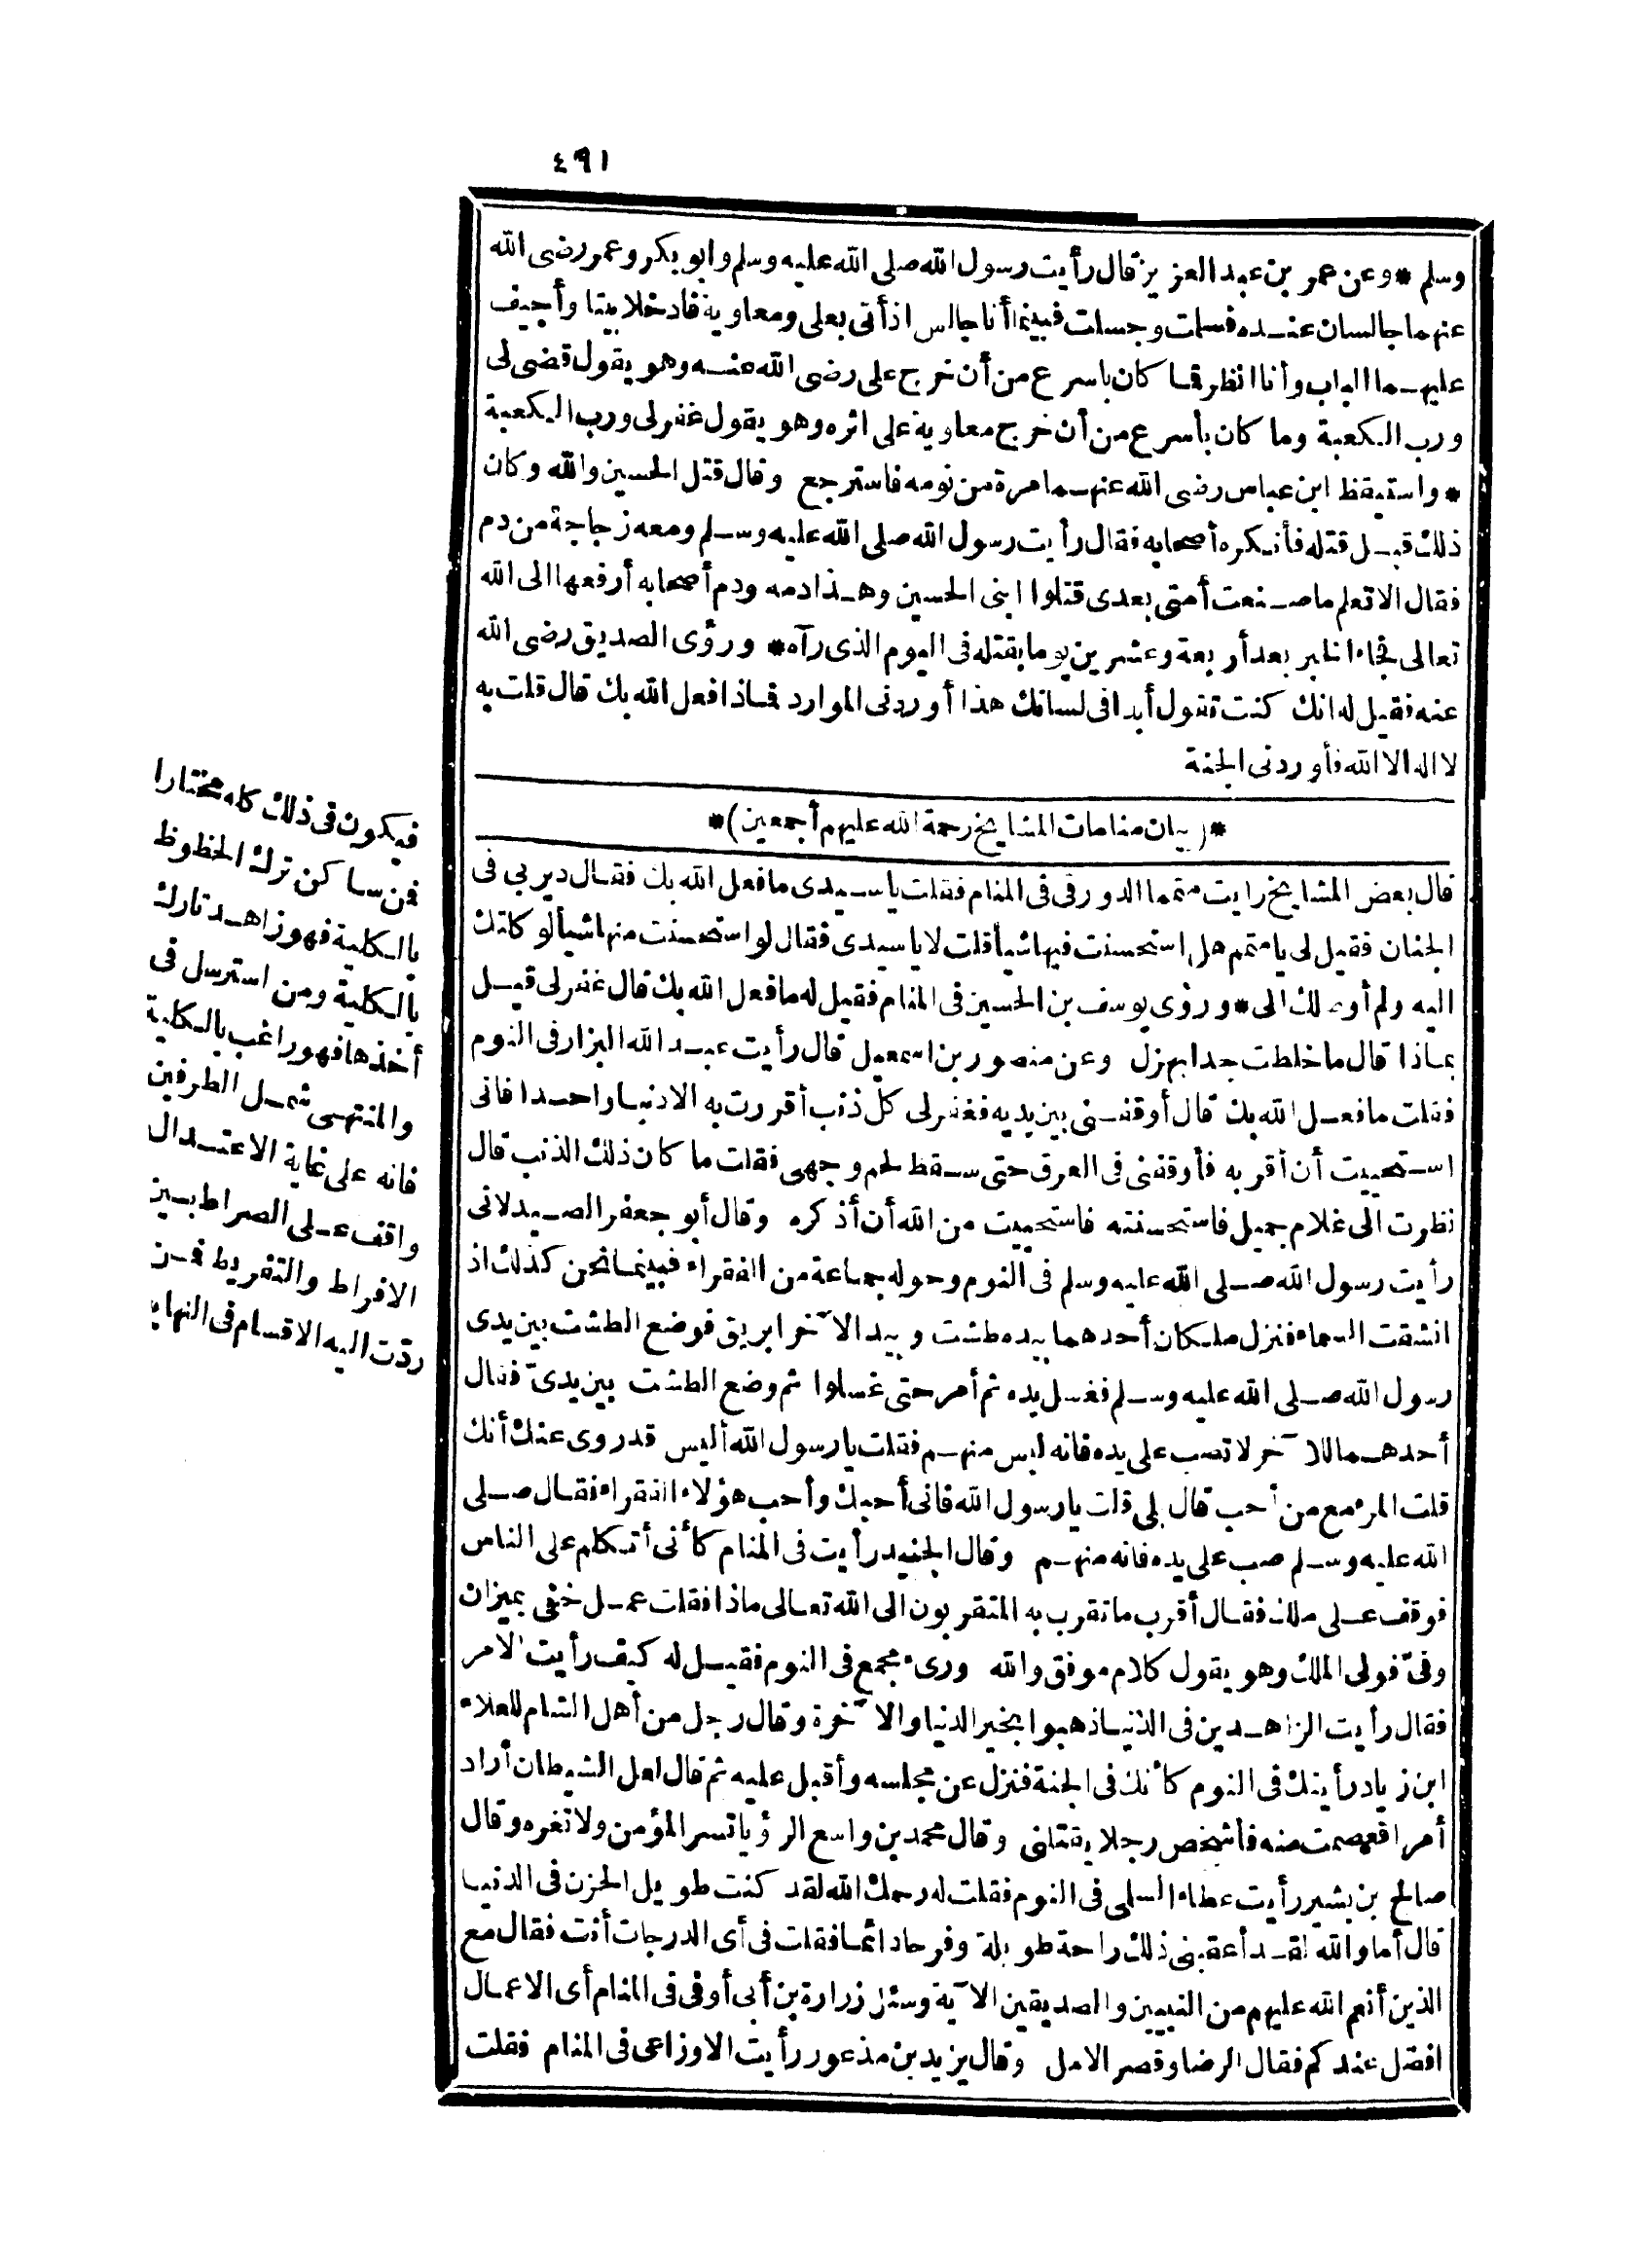 ٤٩١
وسلم * وعن عمر بن عبد العزيز قال رأيت رسول الله صلى الله عليه وسلم وابو بكر وعمر رضى الله
عنهما جالسان عنده فسلمت وجسلت فبينما أنا جالس اذ أتى بعلى ومعاوية فادخلا بيتا وأجيف
عليهما الباب وأنا انظر فما كان باسرع من أن خرج على رضى الله عنه وهو يقول قضى لى
ورب الكعبة وما كان بأسرع من أن خرج معاوية على اثره وهو يقول غفر لى ورب الكعبة
* واستيقظ ابن عباس رضى الله عنهما مرة من نومه فاسترجع وقال قتل الحسين والله وكان
ذلك قبل قتله فأنكره أصحابه فقال رأيت رسول الله صلى الله عليه وسلم ومعه زجاجة من دم
فقال الا تعلم ما صنعت أمتى بعدى قتلوا ابنى الحسين وهذا دمه ودم أصحابه أرفعها الى الله
تعالى فجاء الخبر بعد أربعة وعشرين يوما بقتله فى اليوم الذى رآه * ورؤى الصديق رضى الله
عنه فقيل له انك كنت تقول أبدا فى لسانك هذا أوردنى الموارد فماذا فعل الله بك قال قلت به
لا اله الا الله فأوردنى الجنة
*(بيان منامات المشايخ رحمة الله عليهم أجمعين)*
قال بعض المشايخ رايت متمما الدورقى فى المنام فقلت يا سيدى ما فعل الله بك فقال دير بى فى
الجنان فقيل لى يا متمم هل استحسنت فيها شيأ قلت لا يا سيدى فقال لو استحسنت منها شيأ لوكلتك
اليه ولم أوصلك الى * ورؤى يوسف بن الحسين فى المنام فقيل له ما فعل الله بك قال غفر لى قيل
بماذا قال ما خلطت جدا بهزل وعن منصور بن اسمعيل قال رأيت عبد الله البزار فى النوم
فقلت ما فعل الله بك قال أوقفنى بين يديه فغفر لى كل ذنب أقررت به الا ذنبا واحدا فانى
استحييت أن أقر به فأوقفنى فى العرق حتى سقط لحم وجهى فقلت ما كان ذلك الذنب قال
نظرت الى غلام جميل فاستحسنته فاستحييت من الله أن أذكره وقال أبو جعفر الصيدلانى
رأيت رسول الله صلى الله عليه وسلم فى النوم وحوله جماعة من الفقراء فبينما نحن كذلك اذ
انشقت السماء فنزل ملكان أحدهما بيده طشت وبيد الآخر ابريق فوضع الطشت بين يدى
رسول الله صلى الله عليه وسلم فغسل يده ثم أمر حتى غسلوا ثم وضع الطشت بين يدىّ فقال
أحدهما للآخر لا تصب على يده فانه ليس منهم فقلت يا رسول الله أليس قد روى عنك أنك
قلت المرء مع من أحب قال بلى قلت يا رسول الله فانى أحبك وأحب هؤلاء الفقراء فقال صلى
الله عليه وسلم صب على يده فانه منهم وقال الجنيد رأيت فى المنام كأنى أتكلم على الناس
فوقف على ملك فقال أقرب ما تقرب به المتقربون الى الله تعالى ماذا فقلت عمل خفى بميزان
وفىّ فولى الملك وهو يقول كلام موفق والله ورىء مجمع فى النوم فقيل له كيف رأيت الامر
فقال رأيت الزاهدين فى الدنيا ذهبوا بخير الدنيا والآخرة وقال رجل من أهل الشام للعلاء
ابن زياد رأيتك فى النوم كأنك فى الجنة فنزل عن مجلسه وأقبل عليه ثم قال لعل الشيطان أراد
أمرا فعصمت منه فأشخص رجلا يقتلنى وقال محمد بن واسع الرؤيا تسر المؤمن ولا تغره وقال
صالح بن بشير رأيت عطاء السلمى فى النوم فقلت له رحمك الله لقد كنت طويل الحزن فى الدنيا
قال أما والله لقد أعقبنى ذلك راحة طويلة وفرحا دائما فقلت فى أى الدرجات أنت فقال مع
الذين أنعم الله عليهم من النبيين والصديقين الآية وسئل زرارة بن أبى أوفى فى المنام أى الاعمال
افضل عندكم فقال الرضا وقصر الامل وقال يزيد بن مذعور رأيت الاوزاعى فى المنام فقلت
فيكون فى ذلك كله مختارا
فمن ساكن ترك الحظوظ
بالكلية فهو زاهد تارك
بالكلية ومن استرسل فى
أخذها فهو راغب بالكلية
والمنتهى شمل الطرفين
فانه على غاية الاعتدال
واقف على الصراط بين
الافراط والتفريط فمن
ردّت اليه الاقسام فى النهاية